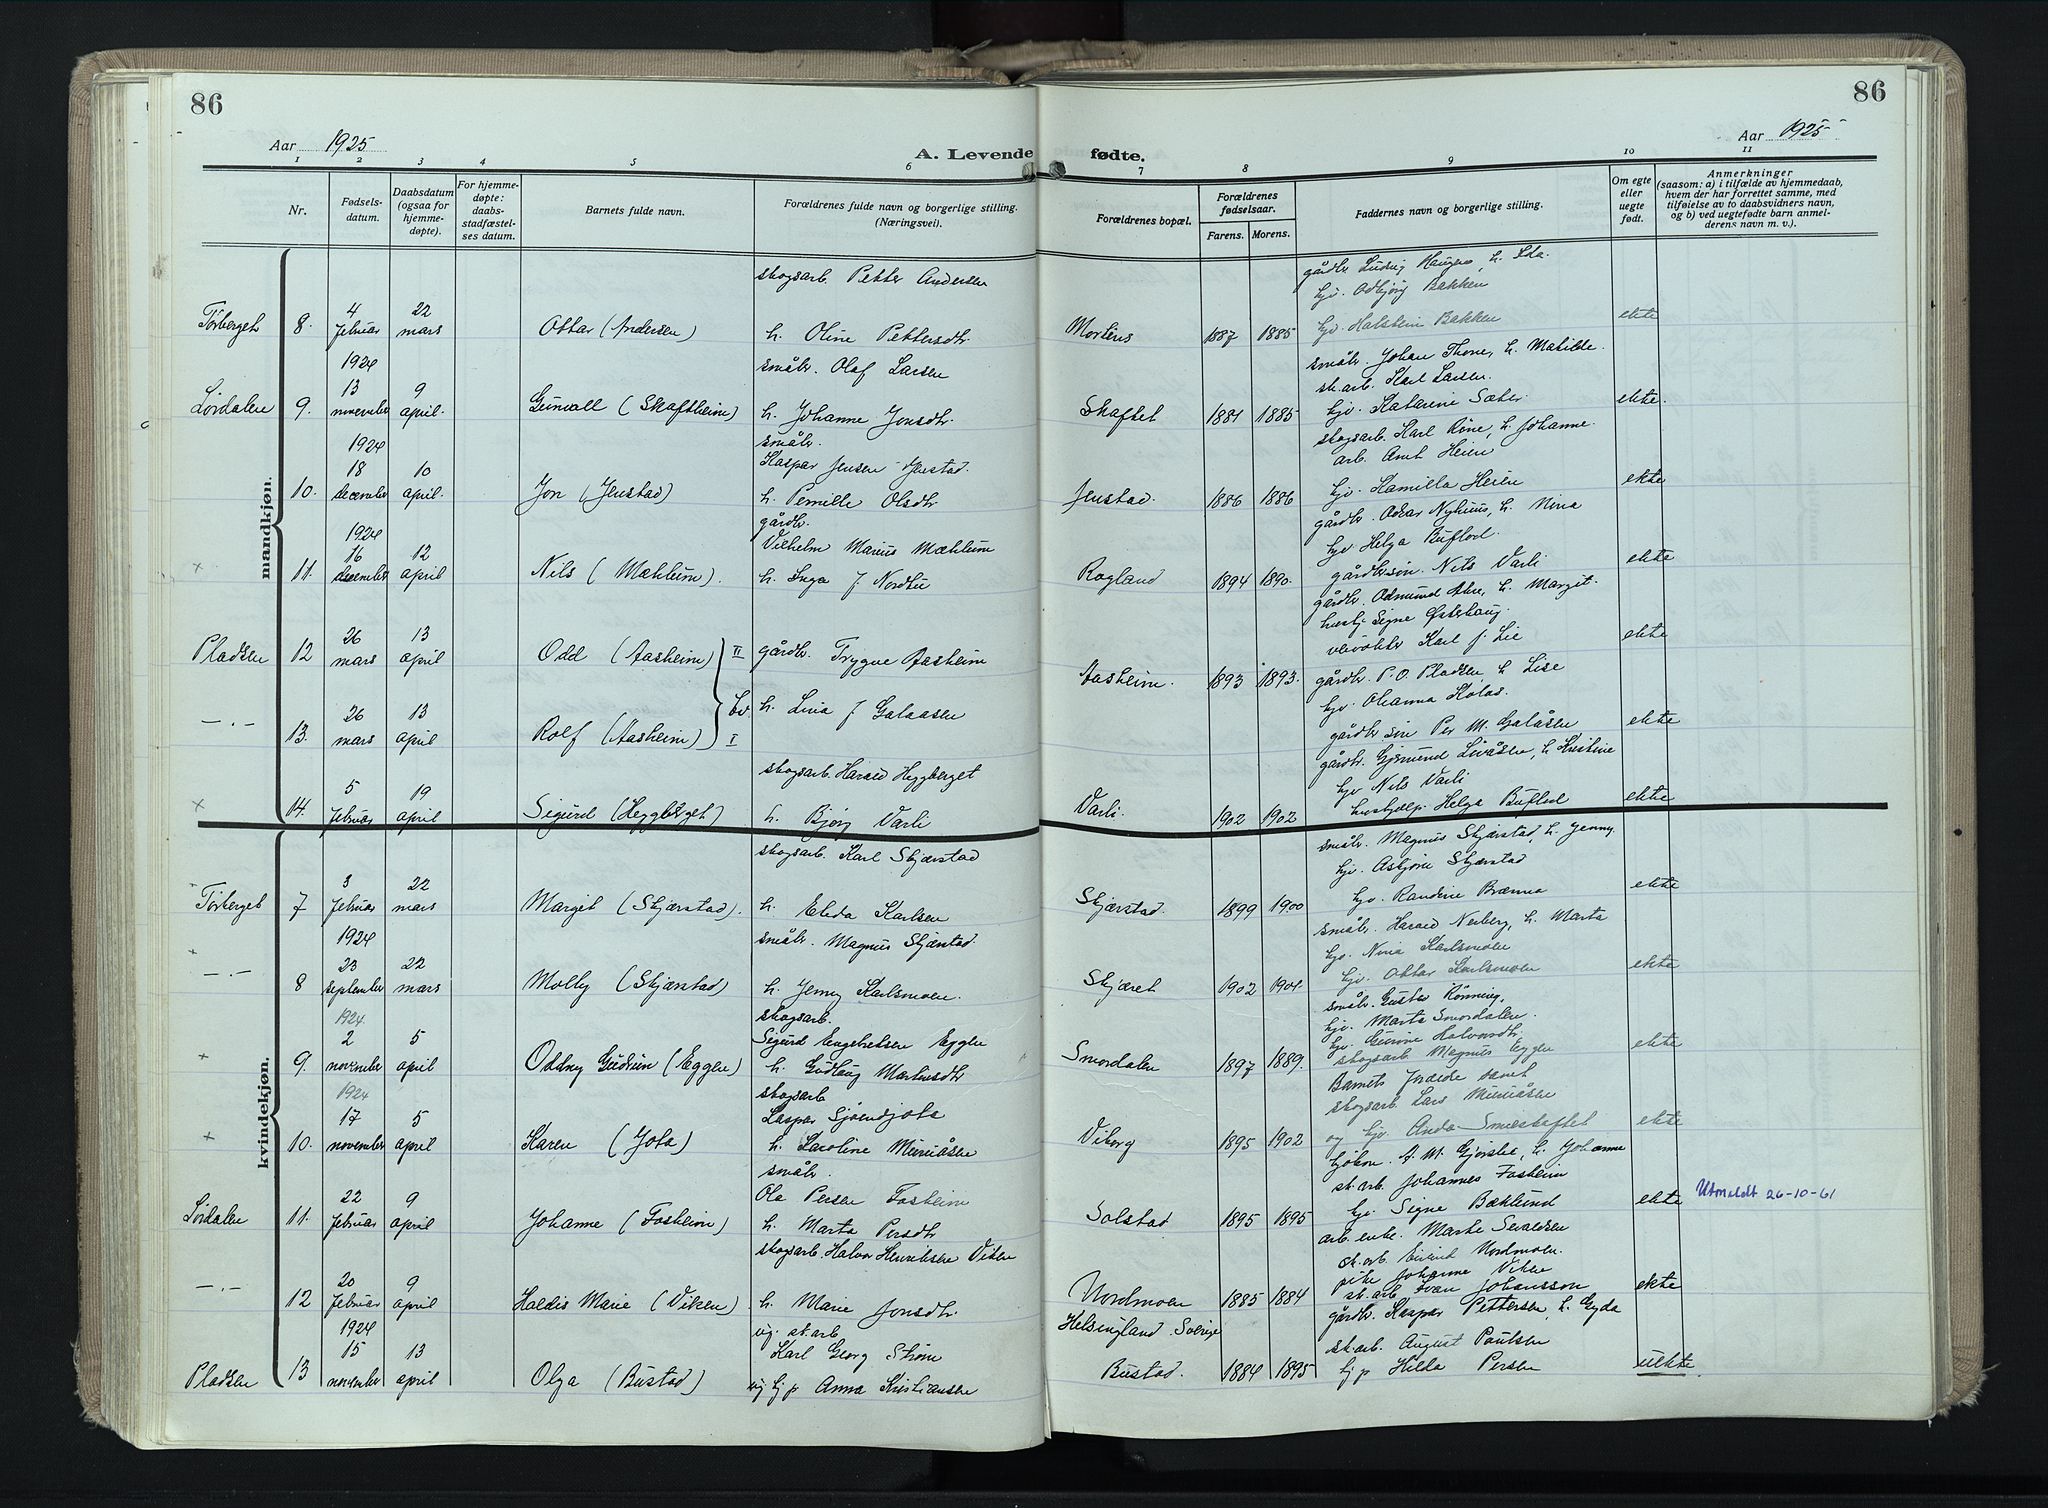 86
86
Aar 1925
Aar 1925
A. Levende fødte.
1 2 3 4 5 6 7 8 9 10 11
Nr.
Fødsels-
datum.
Daabsdatum
(ogsaa for
hjemme-
døpte).
For hjemme-
døpte:
daabs-
stadfæstel-
ses datum.
Barnets fulde navn.
Forældrenes fulde navn og borgerlige stilling.
(Næringsvei).
Forældrenes bopæl.
Forældrenes
fødselsaar.
Farens. Morens.
Faddernes navn og borgerlige stilling.
Om egte
eller
uegte
født.
Anmerkninger
(saasom: a) i tilfælde av hjemmedaab,
hvem der har forrettet samme, med
tilføielse av to daabsvidners navn,
og b) ved uegtefødte barn anmel-
derens navn m. v.).
mandkjøn.
skogsarb. Petter Andersen
gårdbr Ludvig Haugen, h. Ida.
hjv. Odbjørg Bakken
Tørberget 8. 4 februar 22 mars Ottar (Andersen) h. Oline Pettersdtr Mortens 1887 1885 hjv. Halstein Bakken ekte
1924 småbr. Olaf Larsen
småbr. Johan Thone, h. Matilde.
sk.arb. Karl Larsen.
Lørdalen 9. 13 november 9 april. Gunvall (Skaftheim) h. Johanne Jonsdtr. Skaftet 1881 1885 hjv. Katarine Sæter ekte.
1924 småbr.
skogsarb. Karl Røne, h. Johanne.
Kaspar Jensen Jenstad.
arb. Amt Heien
10. 18 december 10 april. Jon (Jenstad) h. Pernille Olsdtr Jenstad. 1886 1886 hjv. Kamilla Heien ekte
gårdbr.
gårdbr. Oskar Nyhuus, h. Nina
1924 Vilhelm Marius Mæhlum
hjv. Helga Buflod.
x 11. 16 december 12 april Nils (Mæhlum). h. Inga J Nordhu Rogland 1894 1890. gårdbr.søn. Nils Varli ekte
gårdbr. Odmund Akre, h. Margit.
husbj Signe Østhaug.
Pladsen 12 26 mars 13 april Odd (Aasheim) II gårdbr. Trygve Aasheim veivokter Karl J. Lie ekte
Aasheim. 1893 1893. gårdbr. P.O. Pladsen, h Lise
hjv. Ohanna Kolås.
tv. h. Lina J Galaasen
—.— 13. 26 mars 13 april Rolf (Aasheim) I gårdbr søn Per M. Galåsen ekte
gårdbr. Gjermund Livåsen, h Kristine
skogsarb. Harald Heggberget
hjv Nils Varli
x 14. 5 februar 19 april Sigurd (Heggberget) h. Bjørg Varli Varli. 1902 1902 husbjælp. Helga Buflod ekte
kvindekjøn.
skogsarb. Karl Skjærstad
småbr. Magnus Skjærstad, h. Jenny.
hjv. Asbjørn Skjærstad
Tørberget 7 3 februar 22 mars Margit (Skjærstad). h. Elida Karlsen Skjærstad. 1899 1900 hjv. Randine Brænna ekte
1924 småbr. Magnus Skjærstad.
småbr. Harald Nerberg, h. Marta
hjv. Nina Karlsmoen
—.— 8 23 september 22 mars Molly (Skjærstad) h. Jenny Karlsmoen. Skjæret 1902 1901. hjv. Ottar Karlsmoen ekte
1924. skogsarb.
småbr. Gustav Rønning,
hjv. Marta Smordalen.
Sigurd Engebretsen Eggen
hjv. Gurine Halvorsdtr.
+ 9. 2 november 5 april Oddny Gudrun (Eggen) h. Gudlaug Martinsdtr Smordalen 1897 1889. skogsarb Magnus Eggen ekte
1924 skogsarb
Barnets forældre samt
Kaspar Sjøendjota
skogsarb. Lars Muruåsen
+ 10. 17 november 5 april Karen (Jota) h. Karoline Muruåsen Viborg 1895 1902 og hjv. Anda Smæskaftet ekte
småbr.
kjøbm. A. M. Gjørslie, h. Johanne
Ola Persen Fosheim
sk.arb. Johannes Fosheim
Lørdalen 11. 22 februar 9 april Johanne (Fosheim) h. Marta Persdtr Solstad 1895 1895 hjv. Signe Bæklund ekte Utmeldt 26-10-61
skogsarb. Halvor Henriksen Viken
arb.enke. Marte Sevaldsen
sk.arb Eivind Nordmoen.
pike Johanne Viken
—.— 12 20 februar 9 april Haldis Marie (Viken) h. Marie Jonsdtr. Nordmoen 1885 1884 sk.arb Ivan Johansson ekte
1924 ug. sk.arb
Helsingland. Sverige
gårdbr. Kaspar Pettersen h. Gyda
Karl Georg Strøm
sk.arb. August Paulsen
Pladsen 13 15 november 13 april Olga (Bustad) ug hjp Anna Kristiansen Bustad. 1884 1895 hjp Hilda Persen uekte